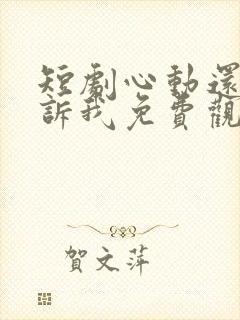 短劇心動還
訴我免費觀
賀文萍